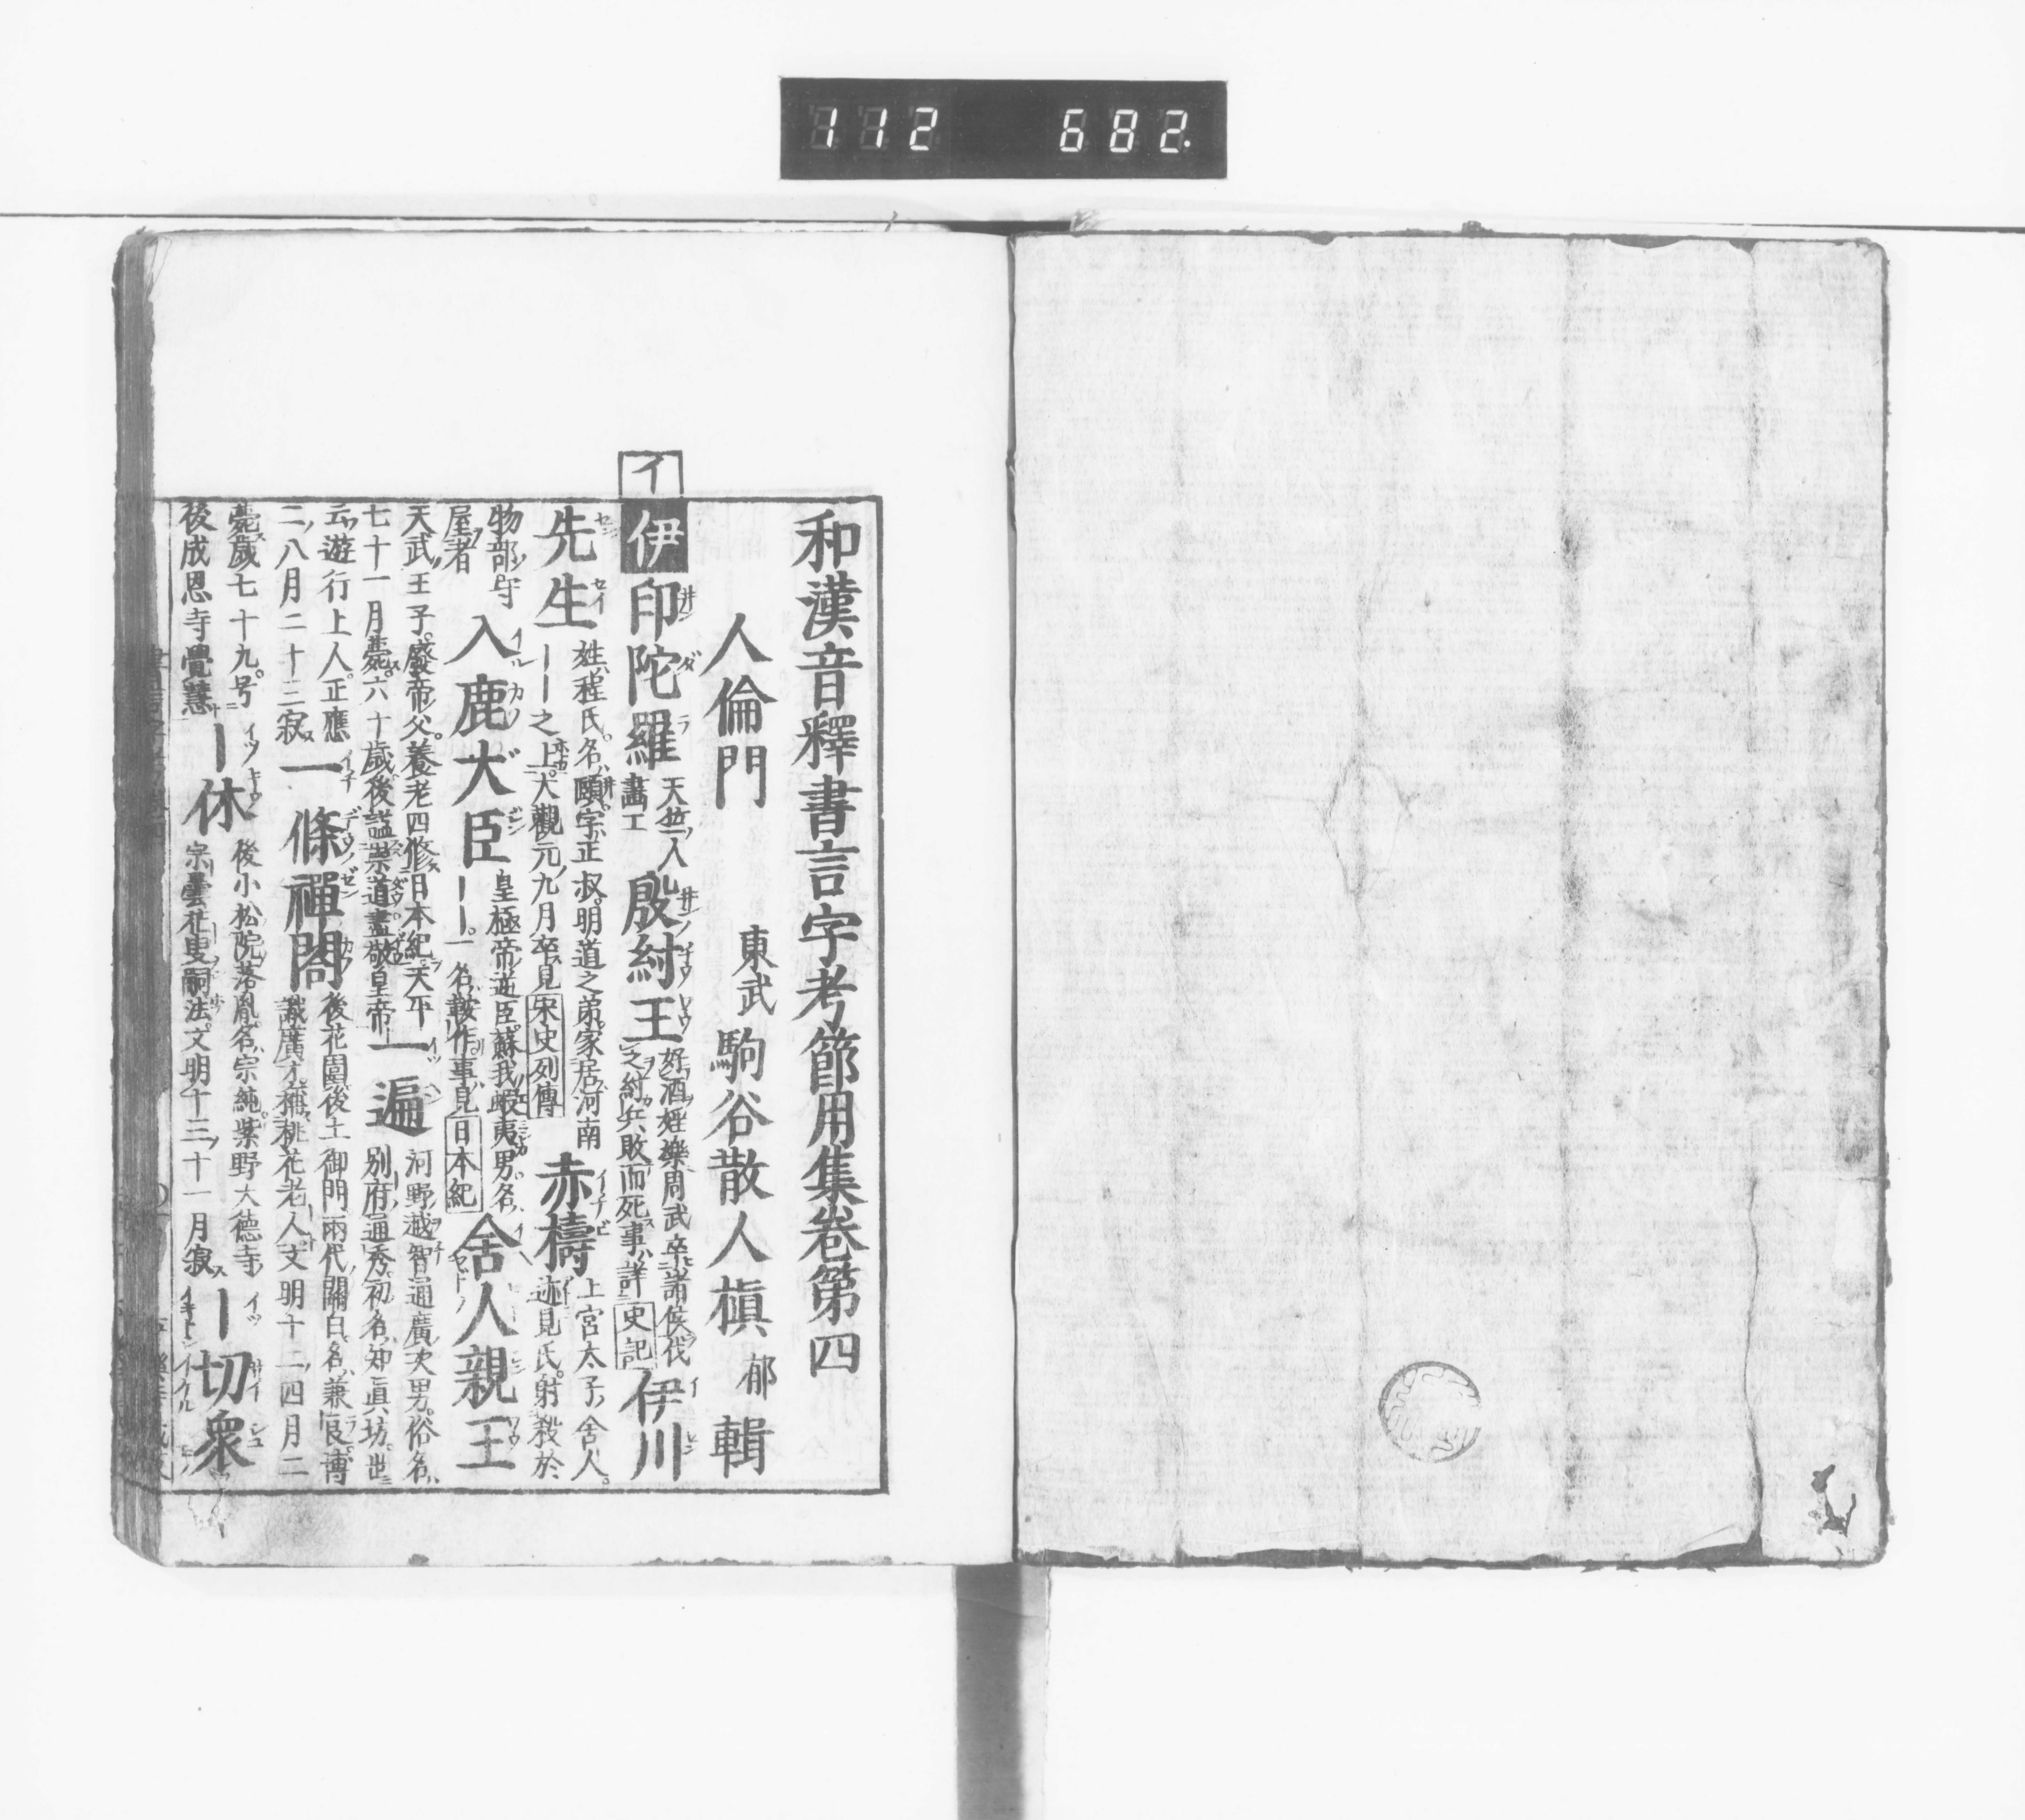 112 682.
和漢音釋書言字考節用集卷第四
人倫門 東武 駒谷散人 槙 郁 輯
イ
伊 印陀羅 天竺人畫工 殷紂王 好酒婬樂周武卒諸侯伐之紂兵敗而死事詳史記 伊川
先生 姓程氏名頤字正叔明道之弟家居河南——之上大觀元九月卒見宋史列傳 赤檮 上宮太子舍人迹見氏射殺於
物部守屋者 入鹿大臣 皇極帝逆臣蘇我蝦夷男名——一名鞍作事見日本紀 舍人親王
天武王子廢帝父養老四修日本紀天平七十一月薨六十歲後謚崇道盡敬皇帝 一遍 河野越智通廣次男俗名別府通秀初名知眞坊出
云遊行上人正應二八月二十三寂 一條禪閤 後花園後土御門兩代關白名兼良博識廣才稱桃花老人文明十二四月二
薨歲七十九号後成恩寺覺慧 一休 後小松院落胤名宗純紫野大德寺宗曇花叟嗣法文明十三十一月寂 一切衆